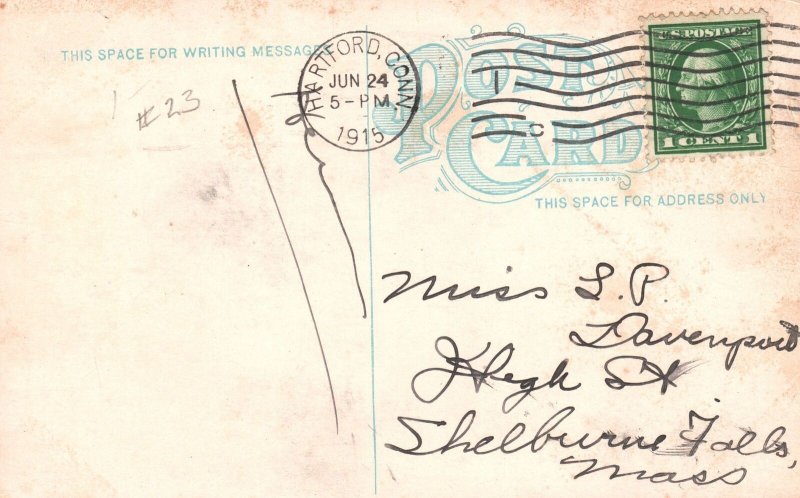 THIS SPACE FOR WRITING MESSAGE
# 23
HARTFORD, CONN
JUN 24
5-PM
1915
POST
CARD
U.S. POSTAGE
1 CENT 1
THIS SPACE FOR ADDRESS ONLY
Miss L. P.
Davenport
High St
Shelburne Falls,
Mass